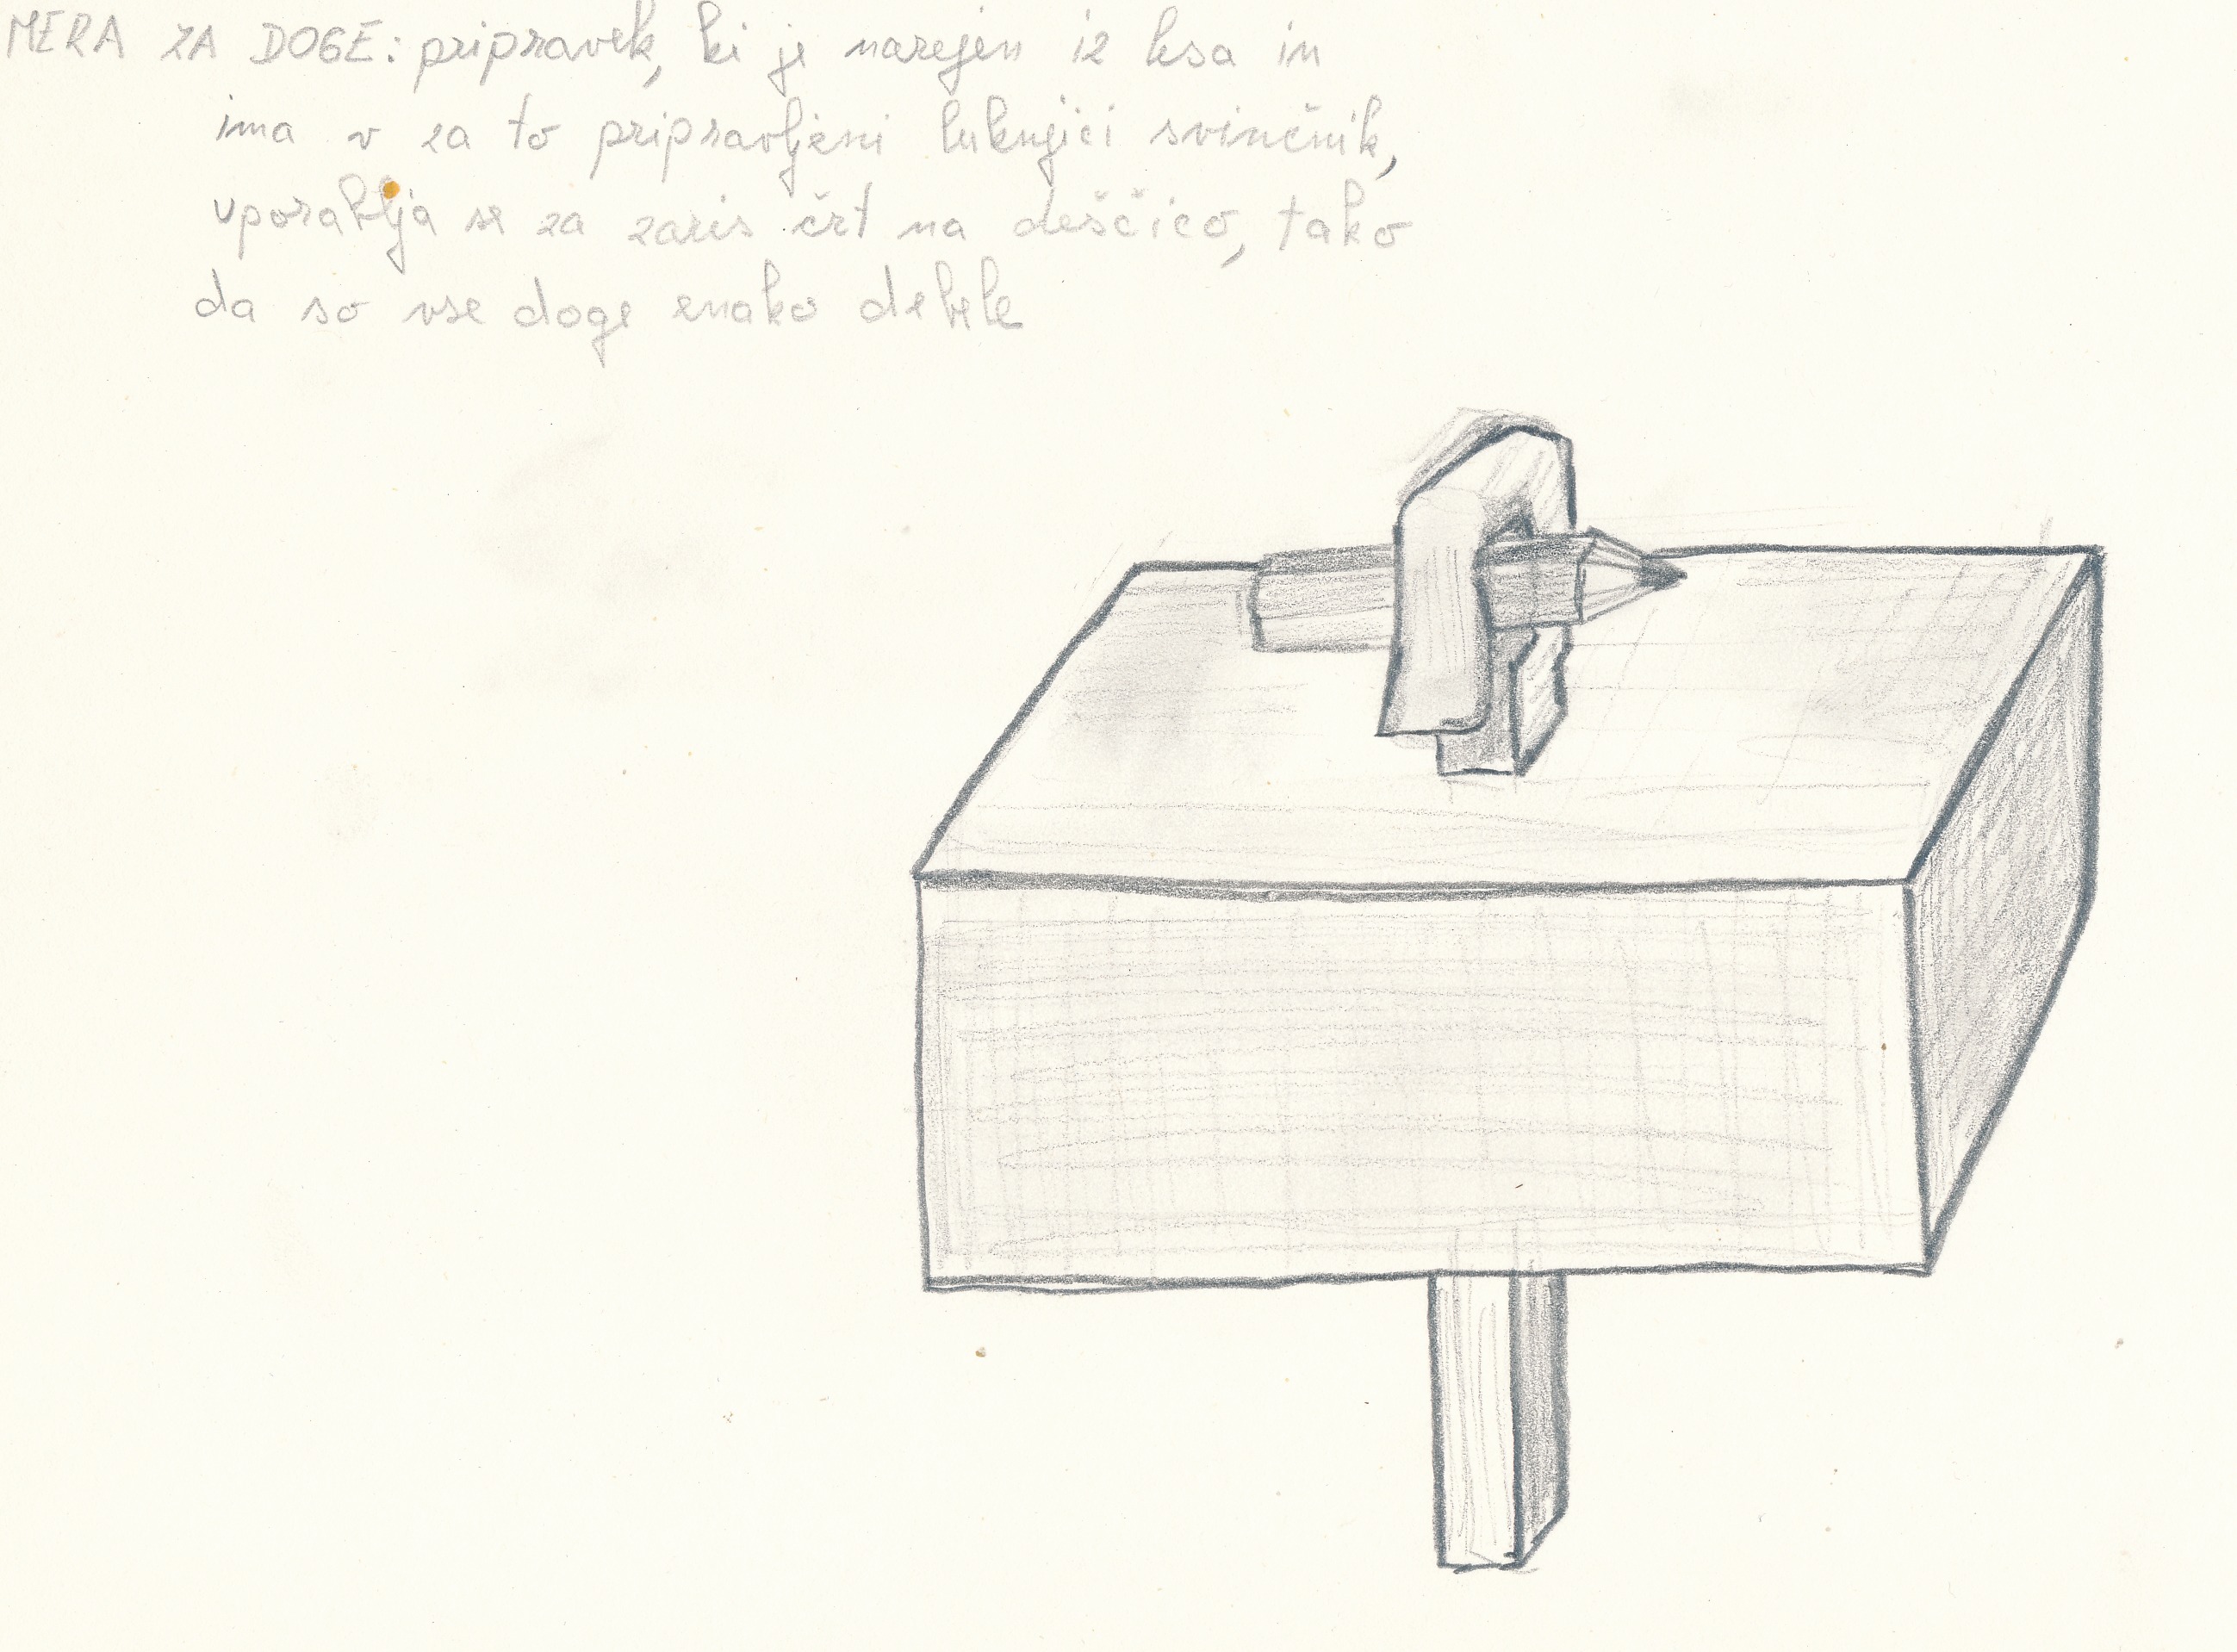 MERA ZA DOGE: pripravek, ki je narejen iz lesa in
ima v za to pripravljeni luknjici svinčnik,
uporablja se za zaris črt na deščico, tako
da so vse doge enako debele